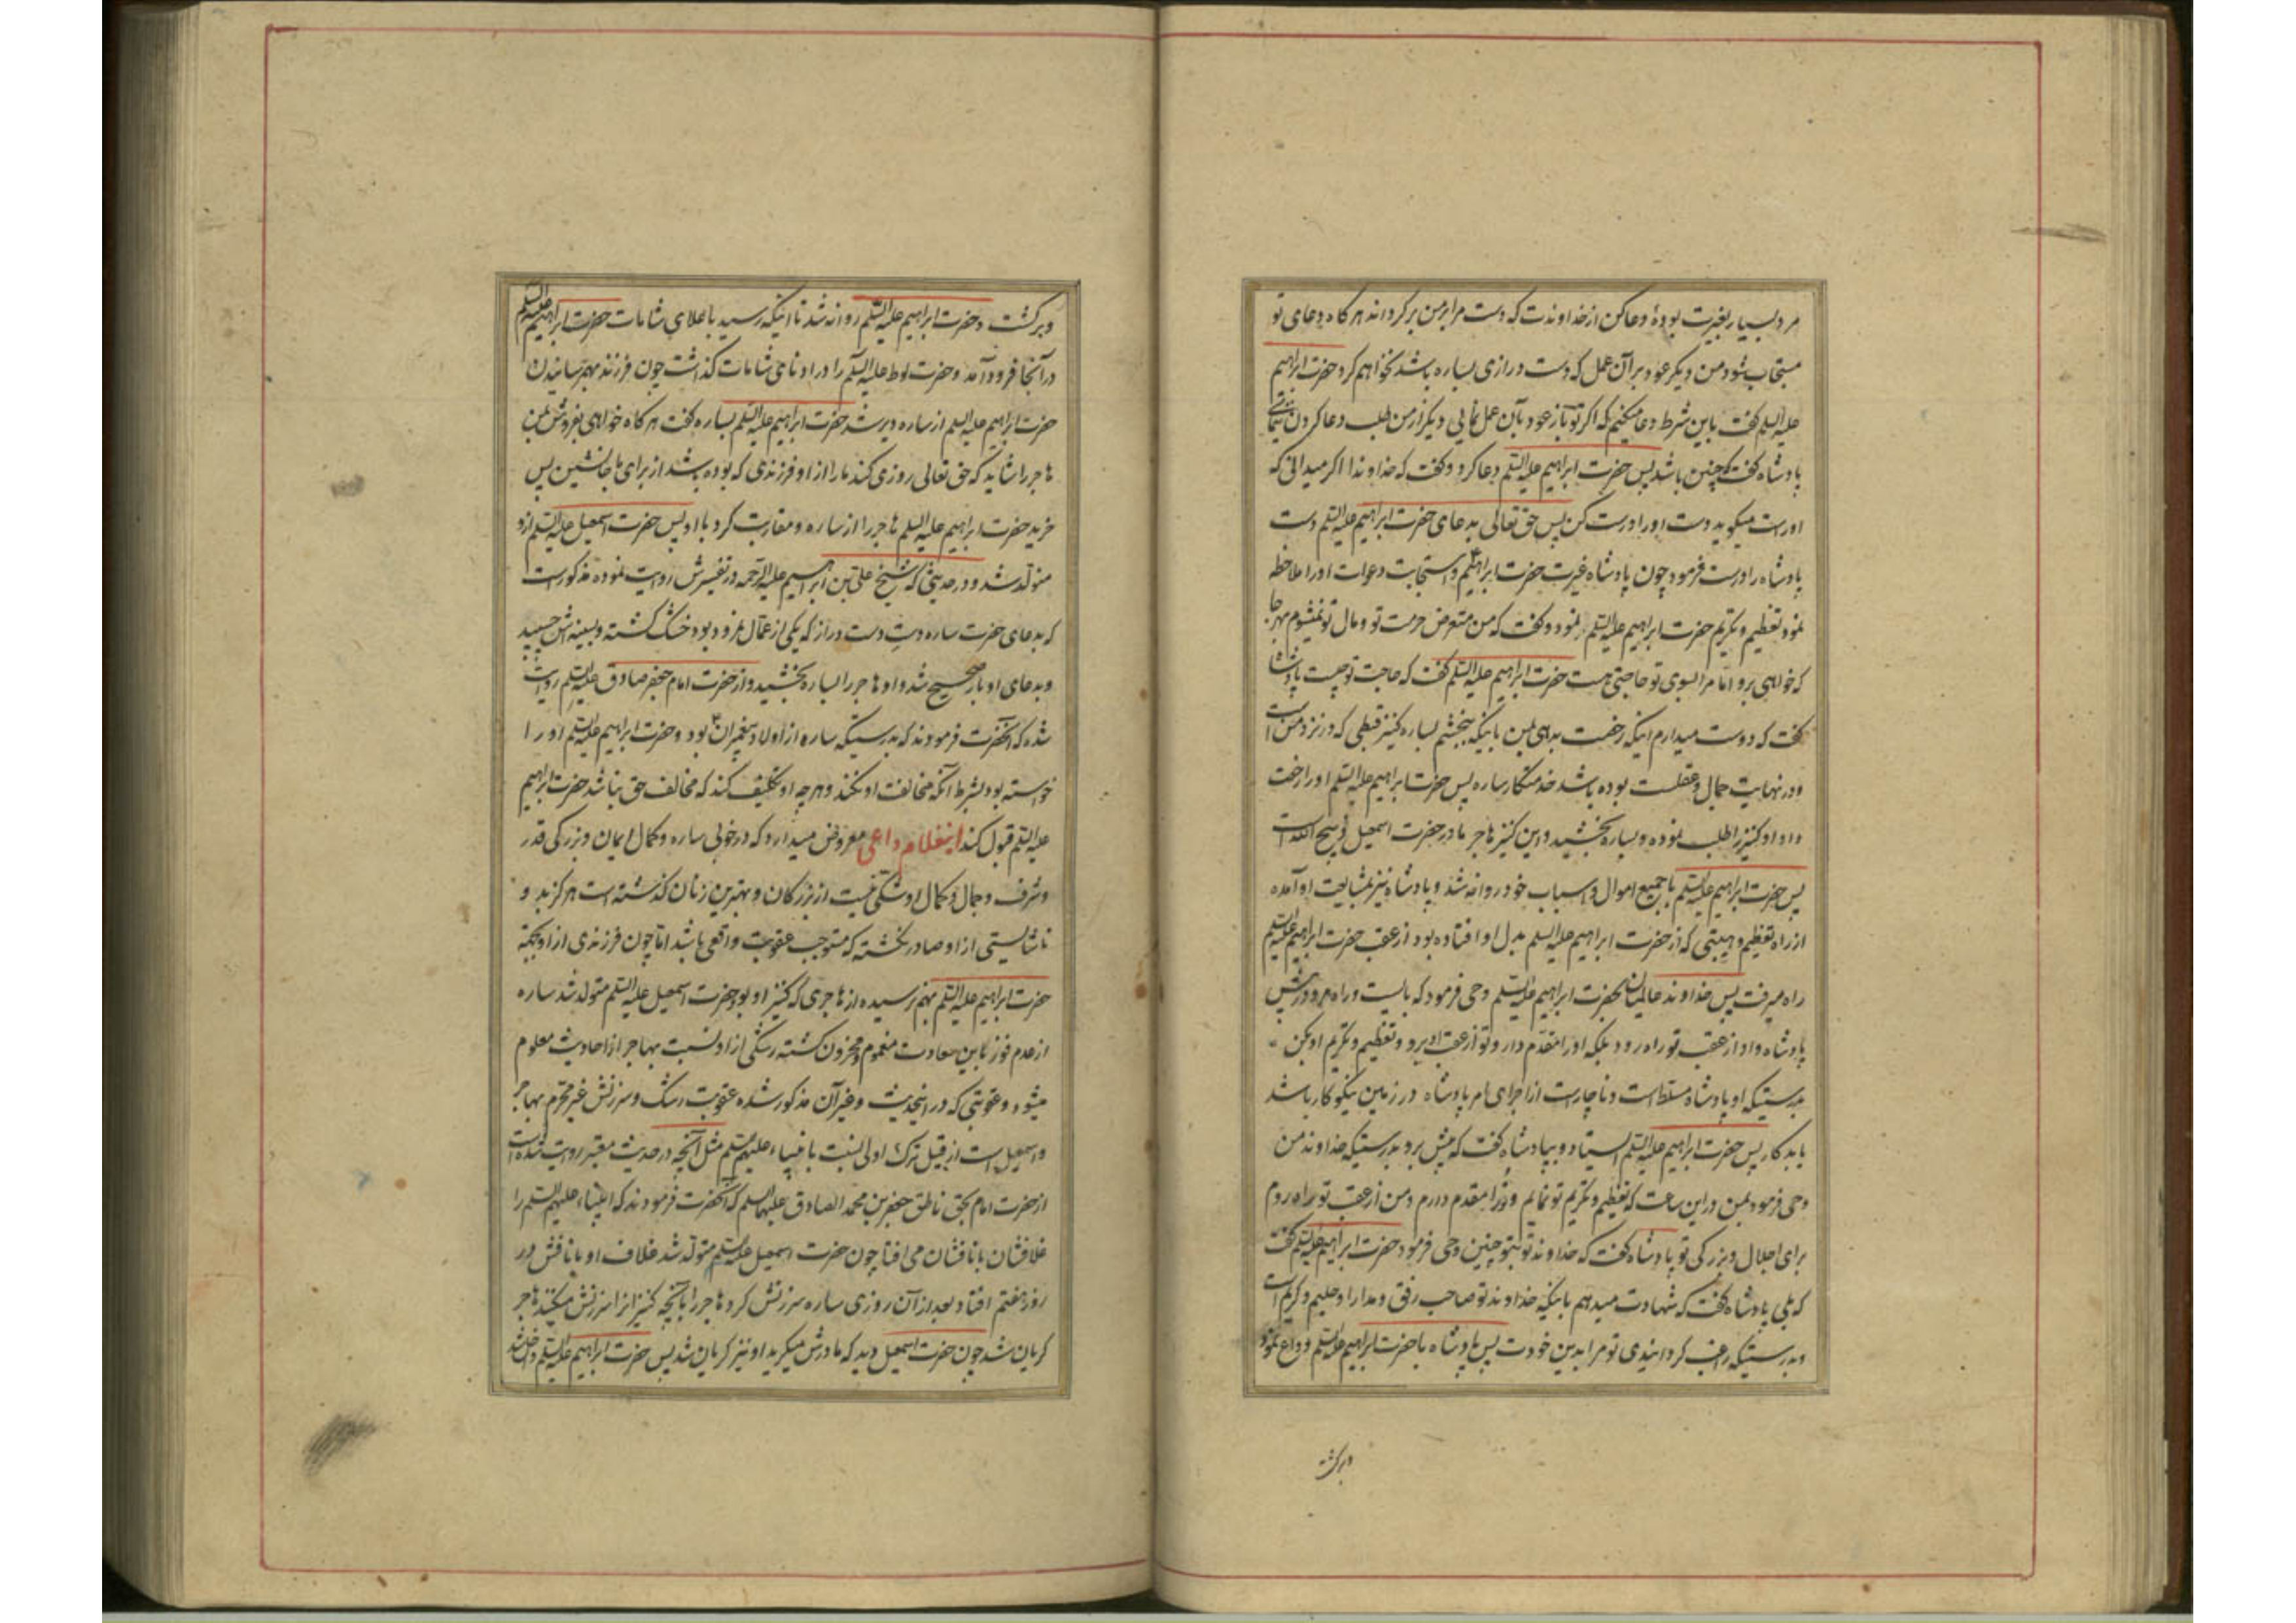 مرد بسیار بغیرت بودهٔ دعا کن از خداوندت که دست مرا بر من برگرداند هرگاه دعای تو
مستجاب شود من دیگر عود بر آن عمل که دست درازی بساره باشد نخواهم کرد حضرت ابراهیم
علیه السلم گفت باین شرط دعا میکنم که اگر تو باز عود بآن عمل نمایی دیگر از من طلب دعا کردن
پادشاه گفت که چنین باشد پس حضرت ابراهیم علیه السلم دعا کرد و گفت که خداوندا اگر میدانی که
او راست میگوید دست او را درست کن پس حق تعالی بدعای حضرت ابراهیم علیه السلم دست
پادشاه را درست فرمود چون پادشاه غیرت حضرت ابراهیم و استجابت دعوات او را ملاحظه
نمود تعظیم و تکریم حضرت ابراهیم علیه السلم نمود و گفت که من متعرض حرمت تو و مال تو نمیشوم بهرجا
که خواهی برو اما مرا بسوی تو حاجتی هست حضرت ابراهیم علیه السلم گفت که حاجت تو چیست پادشاه
گفت که دوست میدارم اینکه رخصت بدهی بمن باینکه ببخشم بساره کنیز قبطی که در نزد من است
و در نهایت جمال و عقلست بوده باشد خدمتکار ساره پس حضرت ابراهیم علیه السلم او را رخصت
داد او کنیز را طلب نموده و بساره بخشید و این کنیز هاجر مادر حضرت اسمعیل ذبیح الله است
پس حضرت ابراهیم علیه السلم با جمیع اموال و اسباب خود روانه شد و پادشاه نیز بمشایعت او آمده
از راه تعظیم و هیبتی که از حضرت ابراهیم علیه السلم بدل او افتاده بود از عقب حضرت ابراهیم علیه السلم
راه میرفت پس خداوند عالمیان بحضرت ابراهیم علیه السلم وحی فرمود که بایست و راه مرو در پیش
پادشاه و او از عقب تو راه رود بلکه او را مقدم دار و تو از عقب او برو و تعظیم و تکریم او بکن
بدرستیکه او پادشاه مسلط است و ناچار است از اجرای امر پادشاه در زمین نیکوکار باشد
یا بدکار پس حضرت ابراهیم علیه السلم ایستاد و بپادشاه گفت که پیش برو بدرستیکه خداوند من
وحی فرمود بمن در این ساعت که تعظیم و تکریم تو نمایم و ترا مقدم دارم و من از عقب تو راه روم
برای اجلال و بزرگی تو پادشاه گفت که خداوند تو بتو چنین وحی فرمود حضرت ابراهیم علیه السلم گفت
که بلی پادشاه گفت که شهادت میدهم باینکه خداوند تو صاحب رفق و مدارا و حلیم و کریم است
و بدرستیکه راغب گردانیدی تو مرا بدین خودت پس پادشاه با حضرت ابراهیم علیه السلم وداع نمود
و برگشت
و برگشت و حضرت ابراهیم علیه السلم روانه شد تا اینکه رسید باعلای شامات حضرت ابراهیم علیه السلم
در آنجا فرود آمد و حضرت لوط علیه السلم را در ادنای شامات گذاشت چون فرزند بهم رسانیدن
حضرت ابراهیم علیه السلم از ساره دیر شد حضرت ابراهیم علیه السلم بساره گفت هرگاه خواهی بفروش بمن
هاجر را شاید که حق تعالی روزی کند ما را از او فرزندی که بوده باشد از برای ما جانشین پس
خرید حضرت ابراهیم علیه السلم هاجر را از ساره و مقاربت کرد با او پس حضرت اسمعیل علیه السلم از او
متولد شد و در حدیثی که شیخ علی بن ابراهیم علیه الرحمه در تفسیرش روایت نموده مذکور است
که بدعای حضرت ساره دست دراز که یکی از عمال نمرود بود خشک گشته و بسینه اش چسبید
و بدعای او باز صحیح شد و او هاجر را بساره بخشید و از حضرت امام جعفر صادق علیه السلم روایت
شده که آنحضرت فرمودند که بدرستیکه ساره از اولاد پیغمبران بود و حضرت ابراهیم علیه السلم او را
خواسته بود بشرط آنکه مخالفت او نکند و هرچه او تکلیف کند که مخالف حق نباشد حضرت ابراهیم
علیه السلم قبول کند اینغلام داعی معروض میدارد که در خوبی ساره و کمال ایمان و بزرگی قدر
و شرف و جمال و کمال او شکی نیست از بزرگان و بهترین زنان گذشته است هرگز بد و
ناشایستی از او صادر نگشته که مستوجب عقوبت واقعی باشد اما چون فرزندی از او بجهة
حضرت ابراهیم علیه السلم بهم نرسیده از هاجری که کنیز او بود حضرت اسمعیل علیه السلم متولد شد ساره
از عدم فوز باین سعادت مغموم و محزون گشته رشکی از او نسبت بهاجر از احادیث معلوم
میشود و عقوبتی که در اینحدیث و غیر آن مذکور شده عقوبت رشک و سرزنش غیر محرم بهاجر
و اسمعیل است از قبیل ترک اولی نسبت بانبیاء علیهم السلم مثل آنچه در حدیث معتبر روایت شده است
از حضرت امام بحق ناطق جعفر بن محمد الصادق علیهما السلم که آنحضرت فرمودند که انبیاء علیهم السلم را
غلافشان با نافشان می افتاد چون حضرت اسمعیل علیه السلم متولد شد غلاف او با نافش در
روز هفتم افتاد بعد از آن روزی ساره سرزنش کرد هاجر را بآنچه کنیزانرا سرزنش میکنند هاجر
گریان شد چون حضرت اسمعیل دید که مادرش میگرید او نیز گریان شد پس حضرت ابراهیم علیه السلم داخل شد